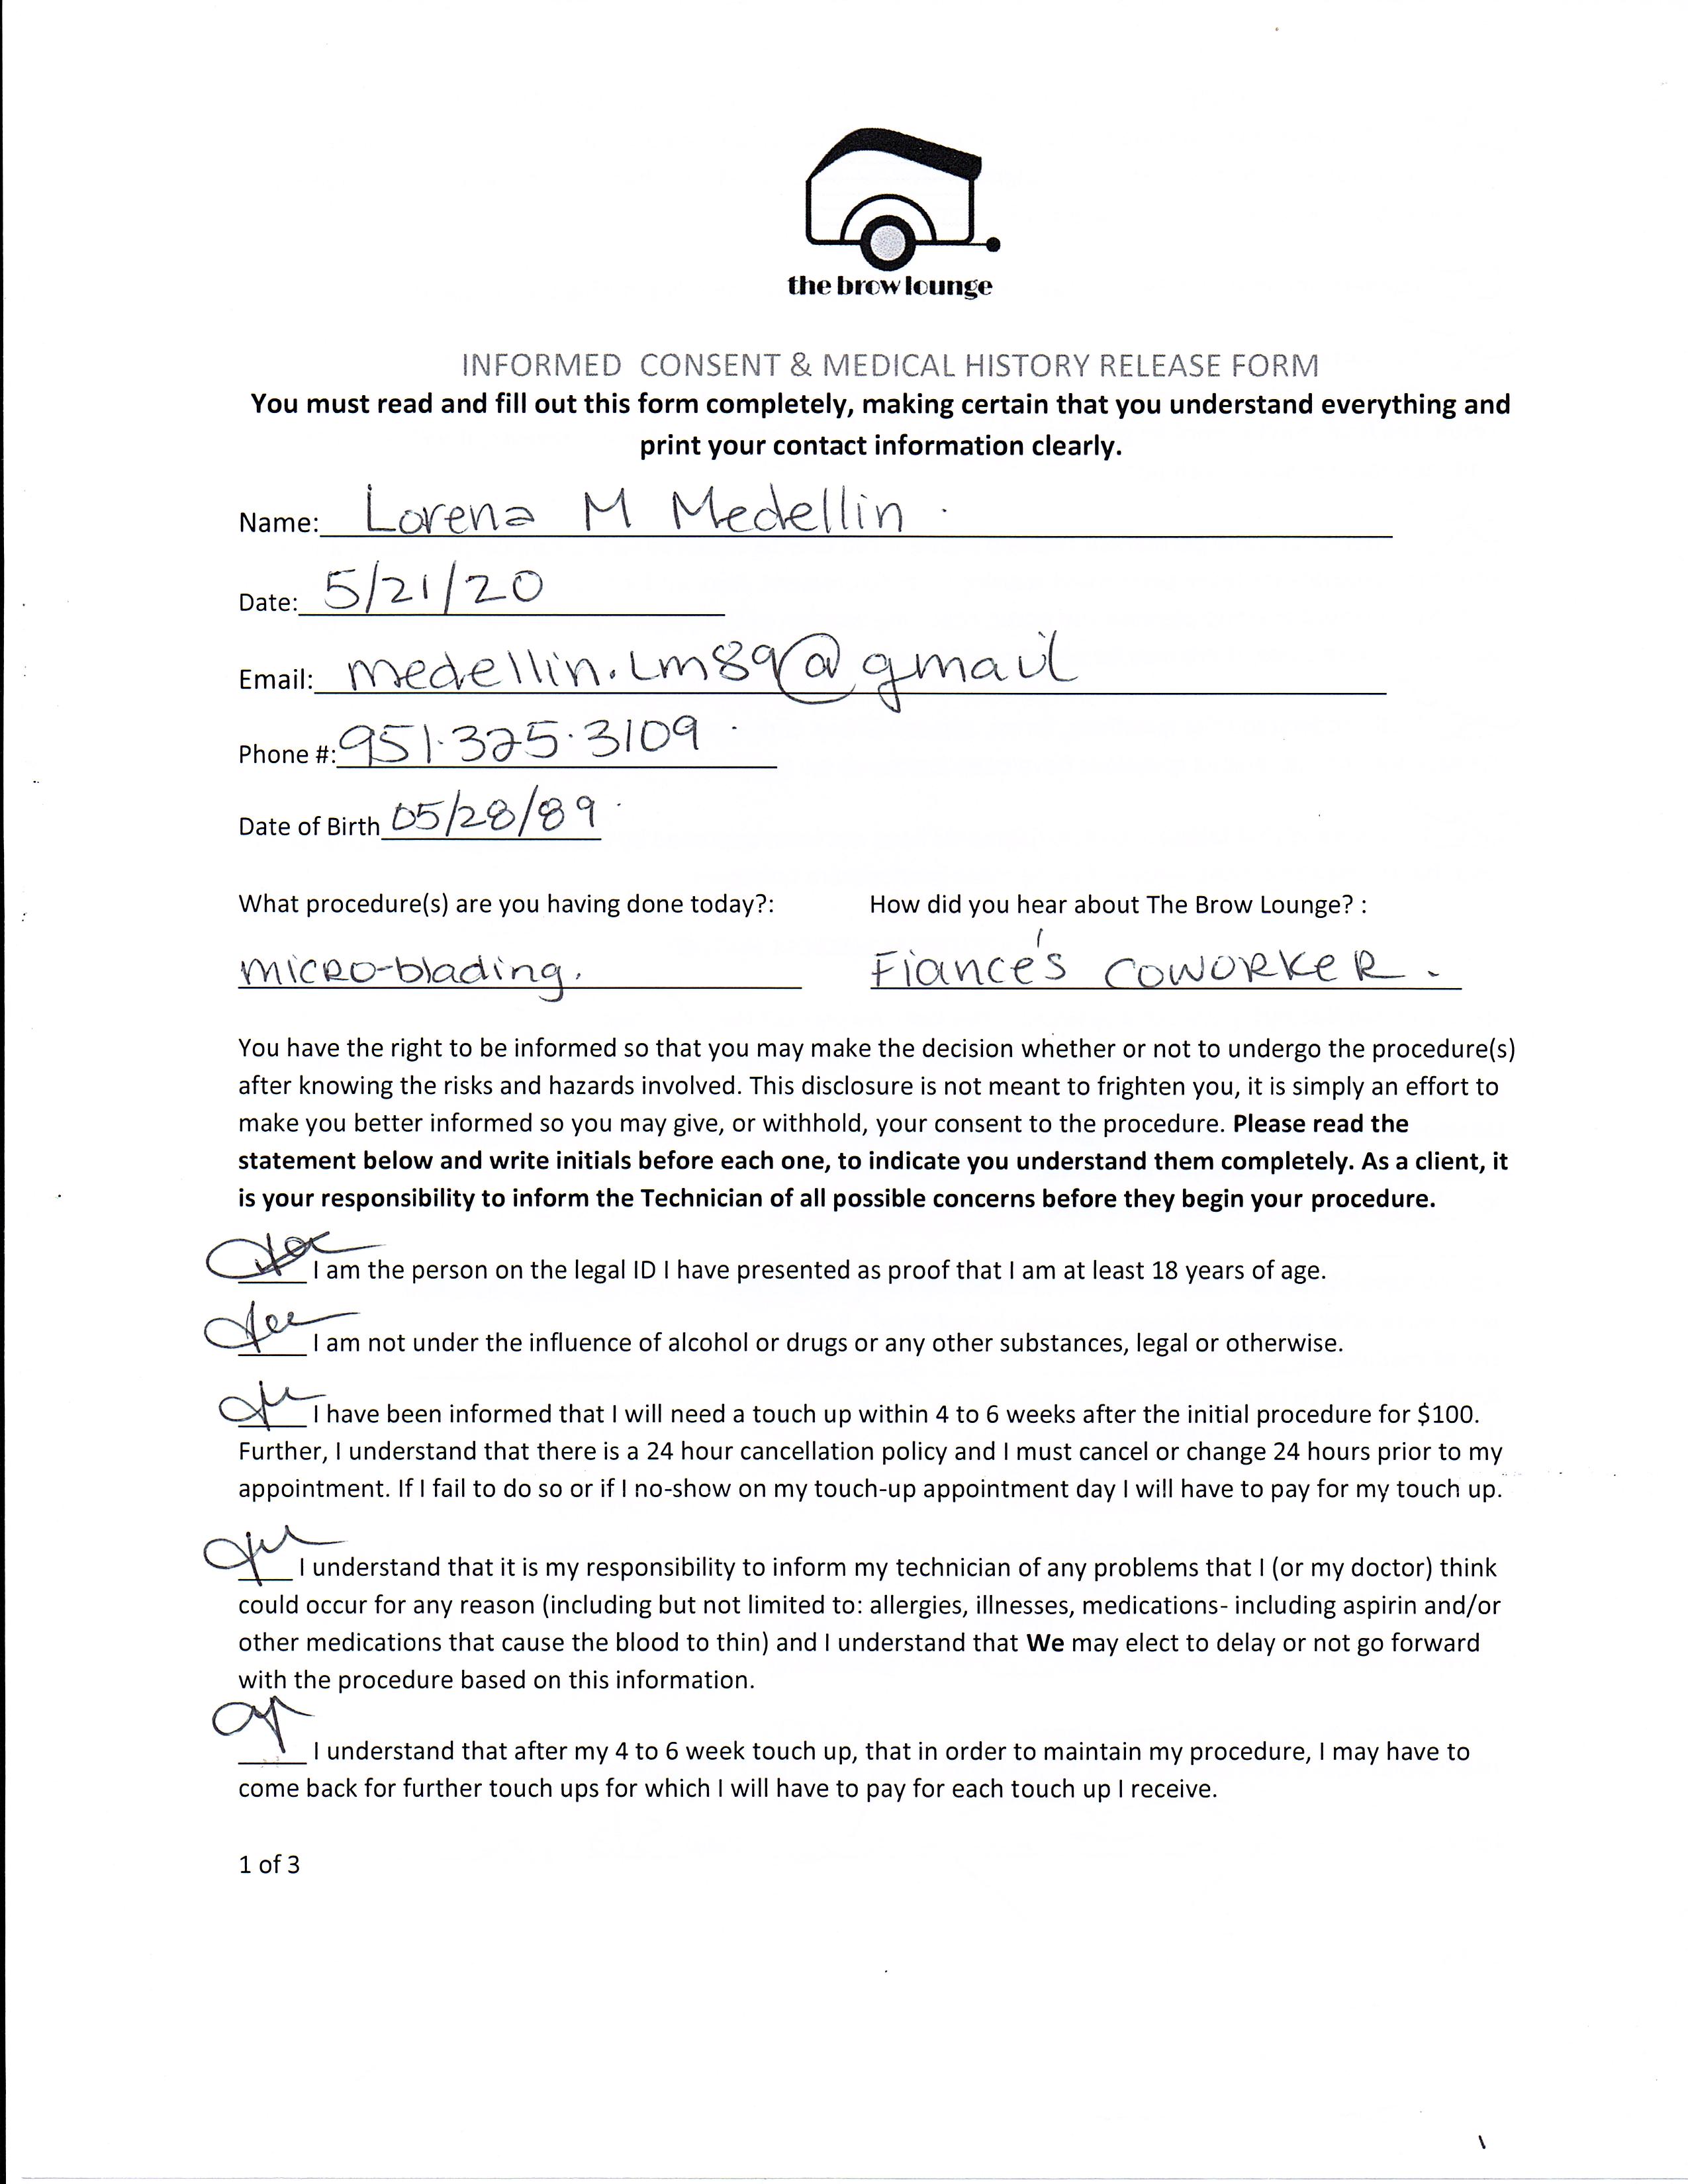 the brow lounge
INFORMED CONSENT & MEDICAL HISTORY RELEASE FORM
You must read and fill out this form completely, making certain that you understand everything and
print your contact information clearly.
Name: Lorena M Medellin
Date: 5/21/20
Email: medellin.lm89@gmail
Phone #: 951.325.3109
Date of Birth 05/28/89
What procedure(s) are you having done today?: How did you hear about The Brow Lounge? :
micro-blading. Fiance's coworker.
You have the right to be informed so that you may make the decision whether or not to undergo the procedure(s)
after knowing the risks and hazards involved. This disclosure is not meant to frighten you, it is simply an effort to
make you better informed so you may give, or withhold, your consent to the procedure. Please read the
statement below and write initials before each one, to indicate you understand them completely. As a client, it
is your responsibility to inform the Technician of all possible concerns before they begin your procedure.
I am the person on the legal ID I have presented as proof that I am at least 18 years of age.
I am not under the influence of alcohol or drugs or any other substances, legal or otherwise.
I have been informed that I will need a touch up within 4 to 6 weeks after the initial procedure for $100.
Further, I understand that there is a 24 hour cancellation policy and I must cancel or change 24 hours prior to my
appointment. If I fail to do so or if I no-show on my touch-up appointment day I will have to pay for my touch up.
I understand that it is my responsibility to inform my technician of any problems that I (or my doctor) think
could occur for any reason (including but not limited to: allergies, illnesses, medications- including aspirin and/or
other medications that cause the blood to thin) and I understand that We may elect to delay or not go forward
with the procedure based on this information.
I understand that after my 4 to 6 week touch up, that in order to maintain my procedure, I may have to
come back for further touch ups for which I will have to pay for each touch up I receive.
1 of 3